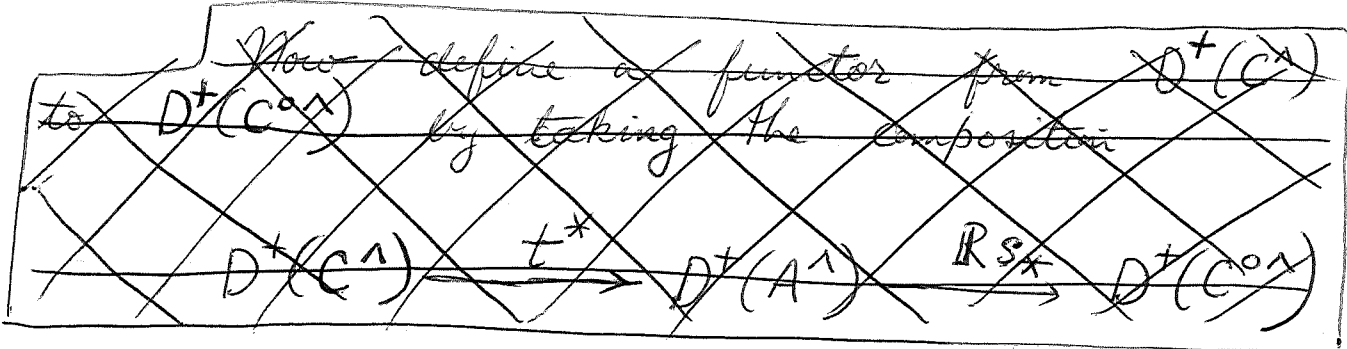 Now define a functor from D⁺(C^)
to D⁺(C°^) by taking the composition
D⁺(C^) —t*→ D⁺(A^) —Rs*→ D⁺(C°^)